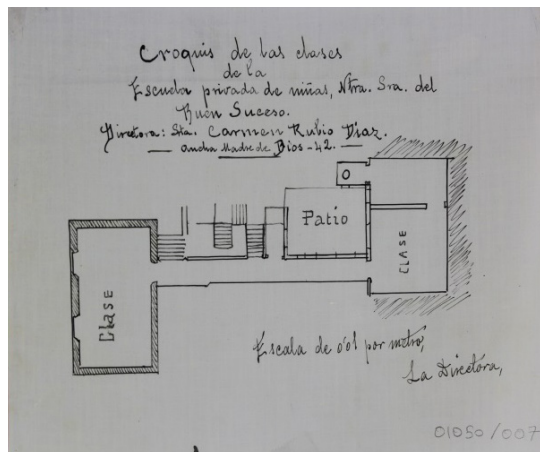 Croquis de las clases
de la
Escuela privada de niñas, Ntra. Sra. del
Buen Suceso.
Diretora: Sta. Carmen Rubio Díaz.
Ancha Madre de Dios - 42.
Patio
CLASE
Clase
Escala de 0'01 por metro,
La Diretora,
01050/007